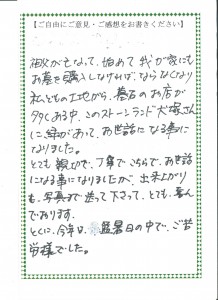 【ご自由にご意見・ご感想をお書きください】
御父が亡なって、始めて我が家にも
お墓を購入しなければ、ならなくなり
私どもの土地がら、墓石のお店が
夕夕くある中、このストーンランド犬塚さん
に縁があって、お世話になる事に
なりました。
とても親切で、丁寧でこちらで、お世話
になる事になりましたが、出来上がり
も、写真まで送って下さって、とても、喜ん
でおります。
とくに、今年は、猛暑日の中で、ご苦
労様でした。